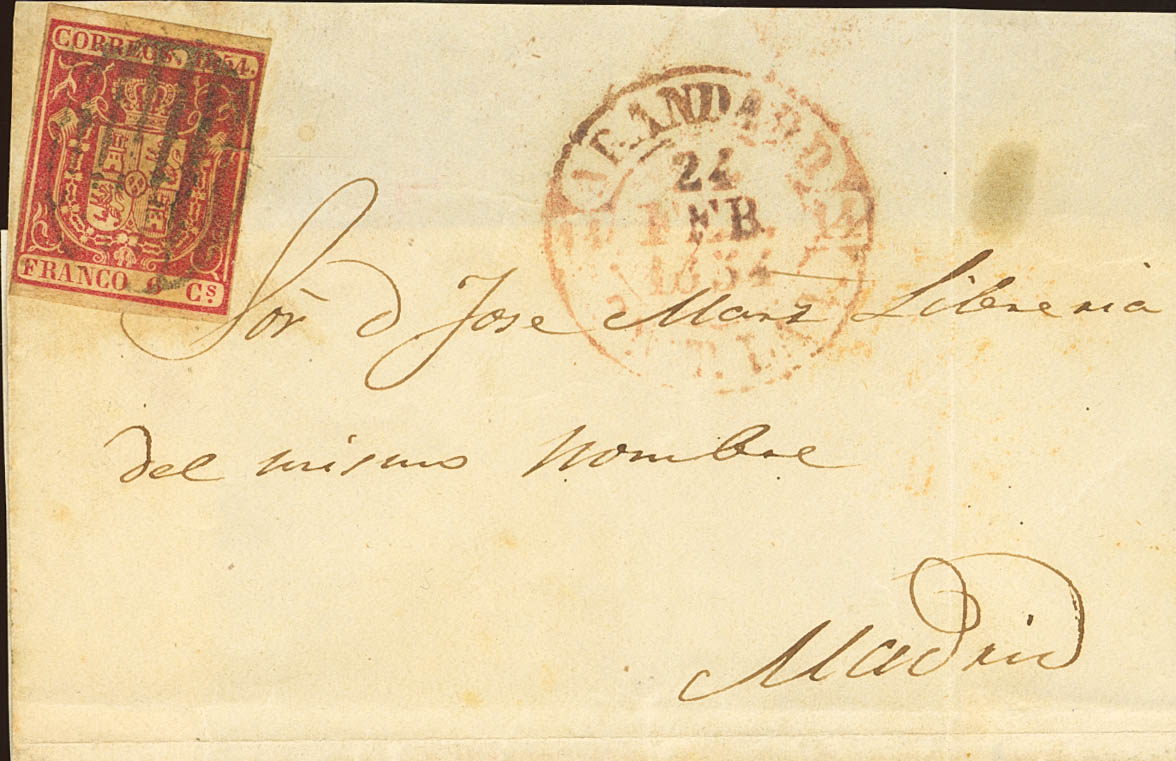 CORREOS. 1854.
FRANCO 6 Cs
ARANDA D D
24
FEB.
1854
Sor. d Jose
Libreria
del mismo nombre
Madrid